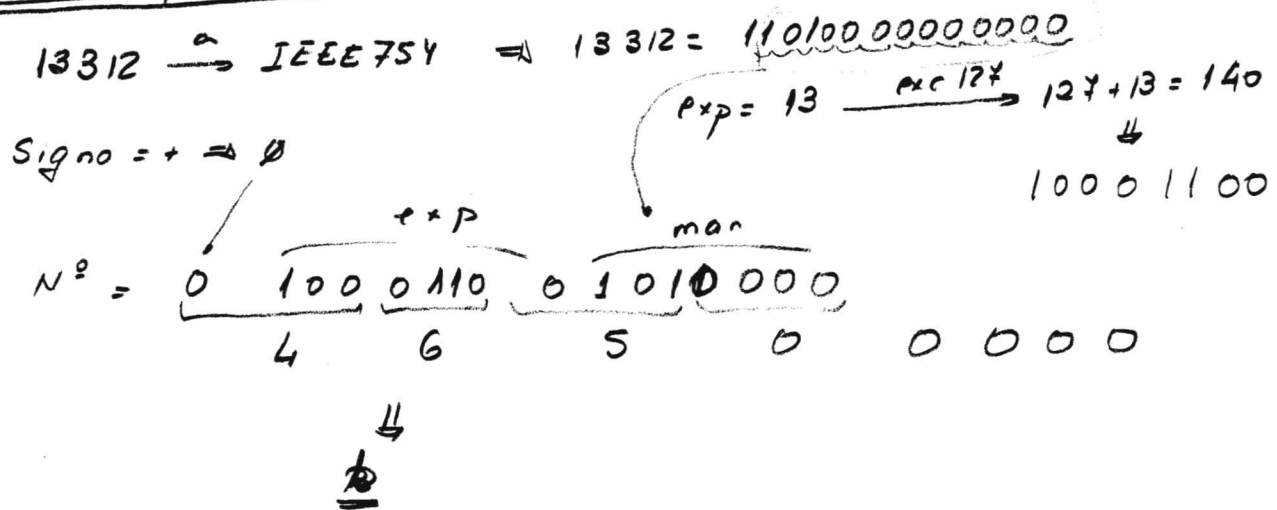 13312 →a IEEE754 ⇒ 13312 = 11010000000000
exp = 13 →exc 127 127 + 13 = 140
Signo = + ⇒ 0
⇓
10001100
exp man
Nº = 0 100 0110 0 1010 000
4 6 5 0 0 0 0 0
⇓
b